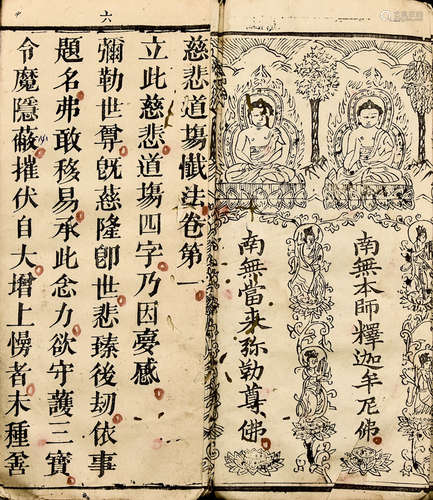 南無本師釋迦牟尼佛
南無當来弥勒尊佛
慈悲道場懺法卷第一
立此慈悲道場四字乃因夢感
彌勒世尊旣慈隆卽世悲臻後劫依事
題名弗敢移易承此念力欲守護三寶
令魔隱蔽摧伏自大增上慢者未種善
六